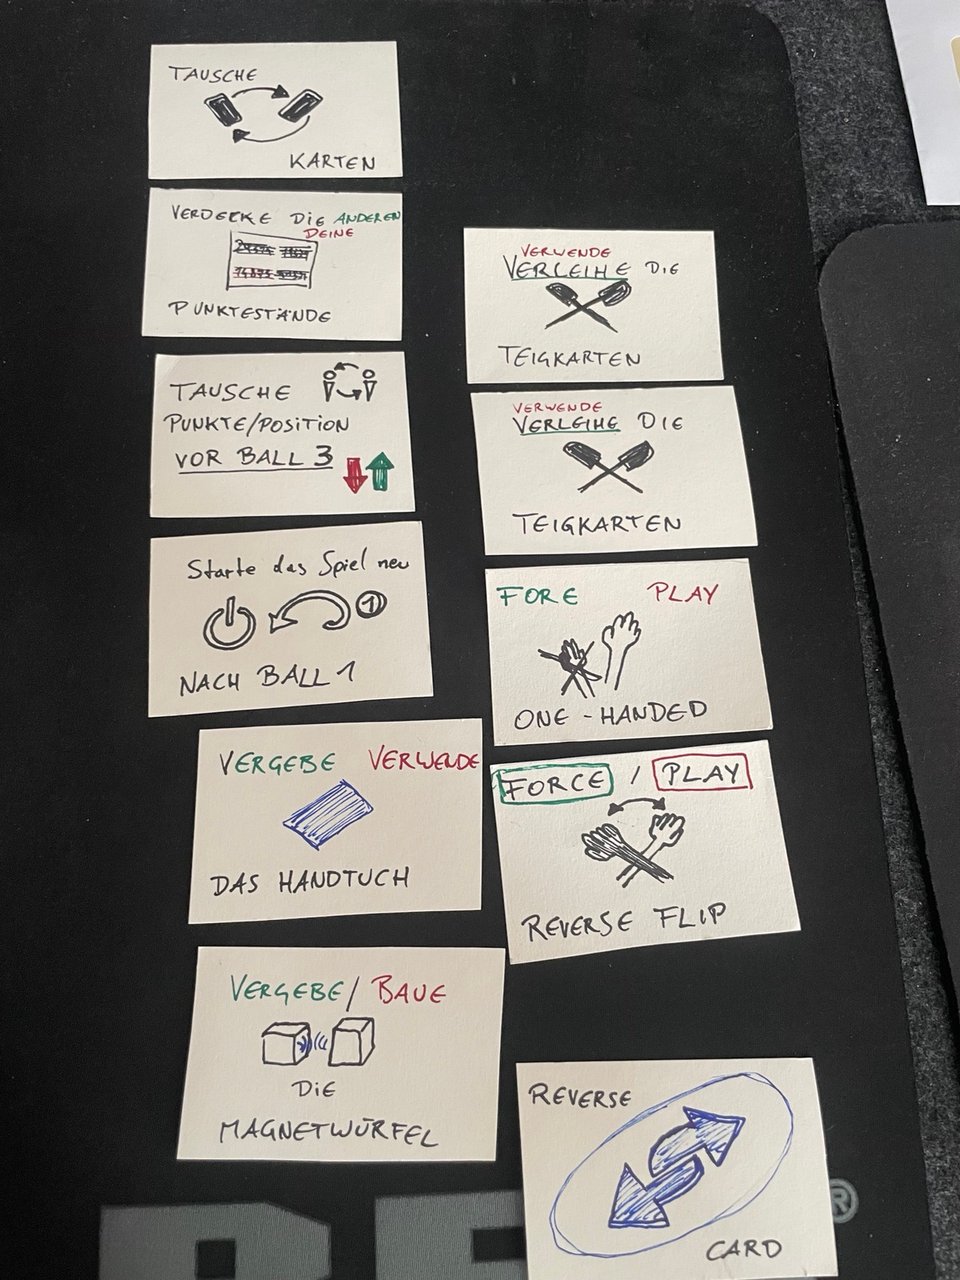 TAUSCHE
KARTEN
VERDECKE DIE ANDEREN
DEINE
PUNKTESTÄNDE
TAUSCHE
PUNKTE/POSITION
VOR BALL 3
Starte das Spiel neu
1
NACH BALL 1
VERGEBE VERWENDE
DAS HANDTUCH
VERGEBE / BAUE
DIE
MAGNETWÜRFEL
VERWENDE
VERLEIHE DIE
TEIGKARTEN
VERWENDE
VERLEIHE DIE
TEIGKARTEN
FORE PLAY
ONE-HANDED
FORCE / PLAY
REVERSE FLIP
REVERSE
CARD
®